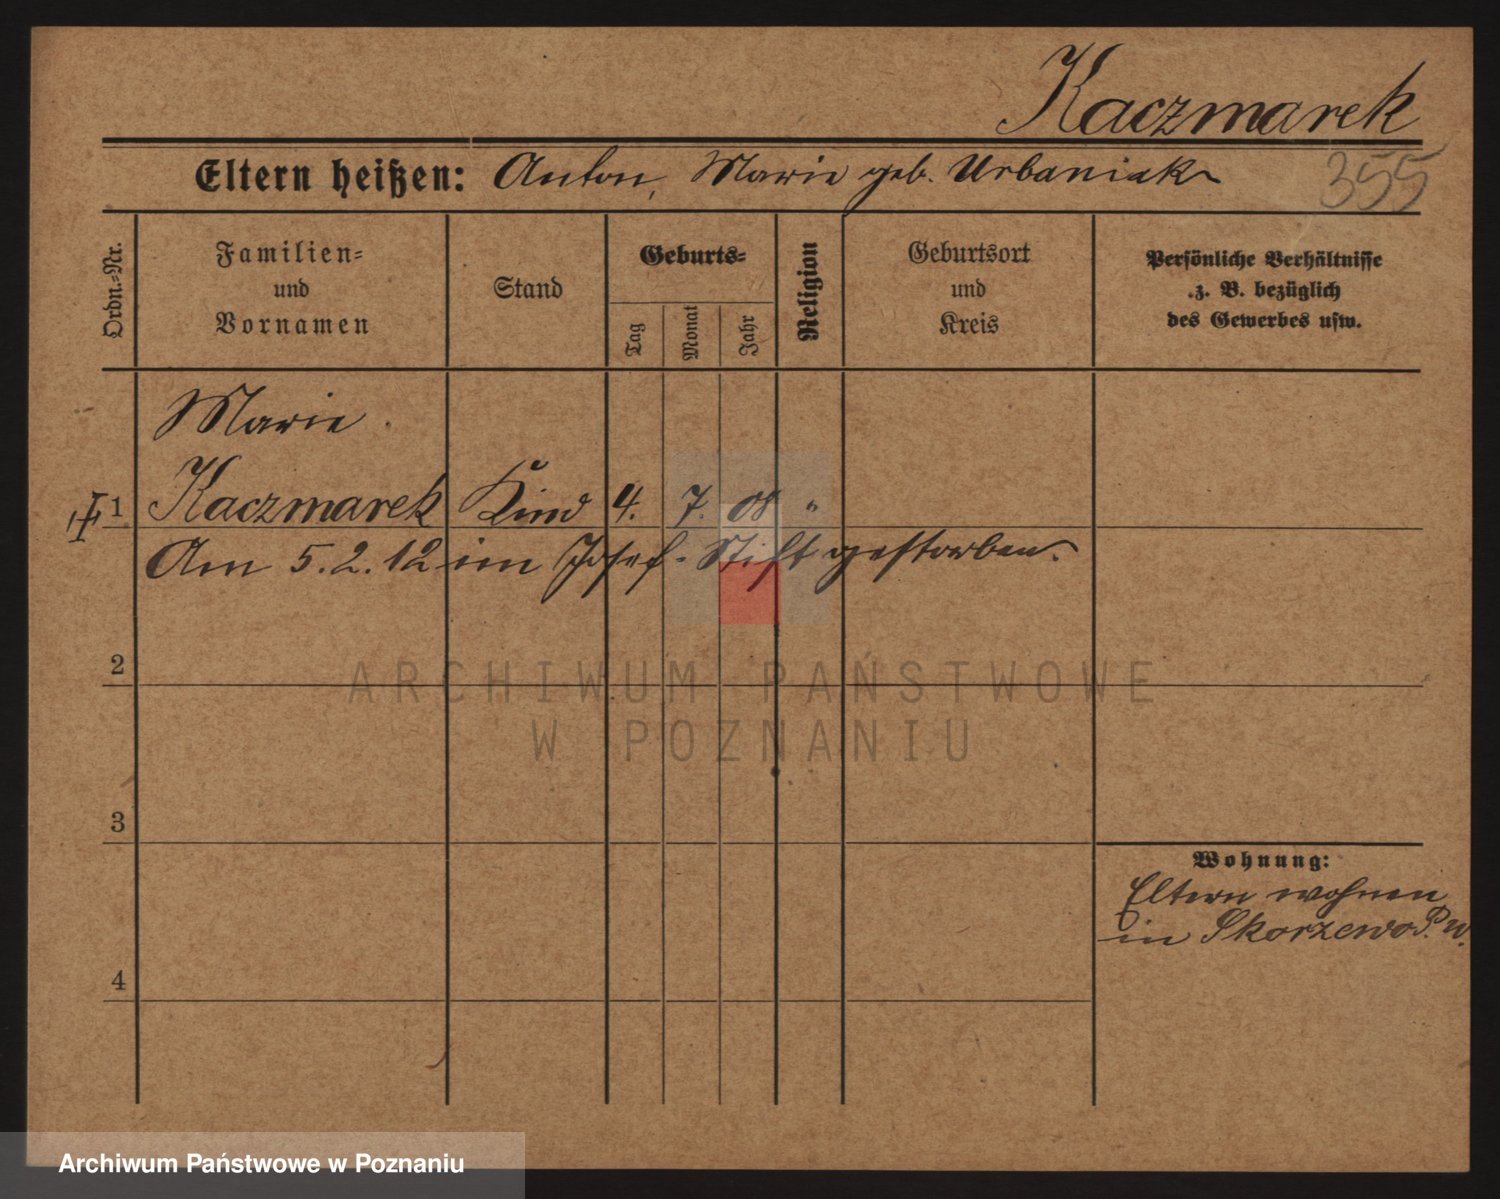 Kaczmarek
Eltern heißen: Anton, Marie geb. Urbaniak
355
Ordn.-Nr.
Familien-
und
Vornamen
Stand
Geburts-
Tag
Monat
Jahr
Religion
Geburtsort
und
Kreis
Persönliche Verhältnisse
z. B. bezüglich
des Gewerbes usw.
Marie
1 Kaczmarek Kind 4. 7. 08 "
Am 5.2.12 im Josef-Stift gestorben.
2
ARCHIWUM PAŃSTWOWE
W POZNANIU
3
Wohnung:
Eltern wohnen
in Skorzewo P. W.
4
Archiwum Państwowe w Poznaniu